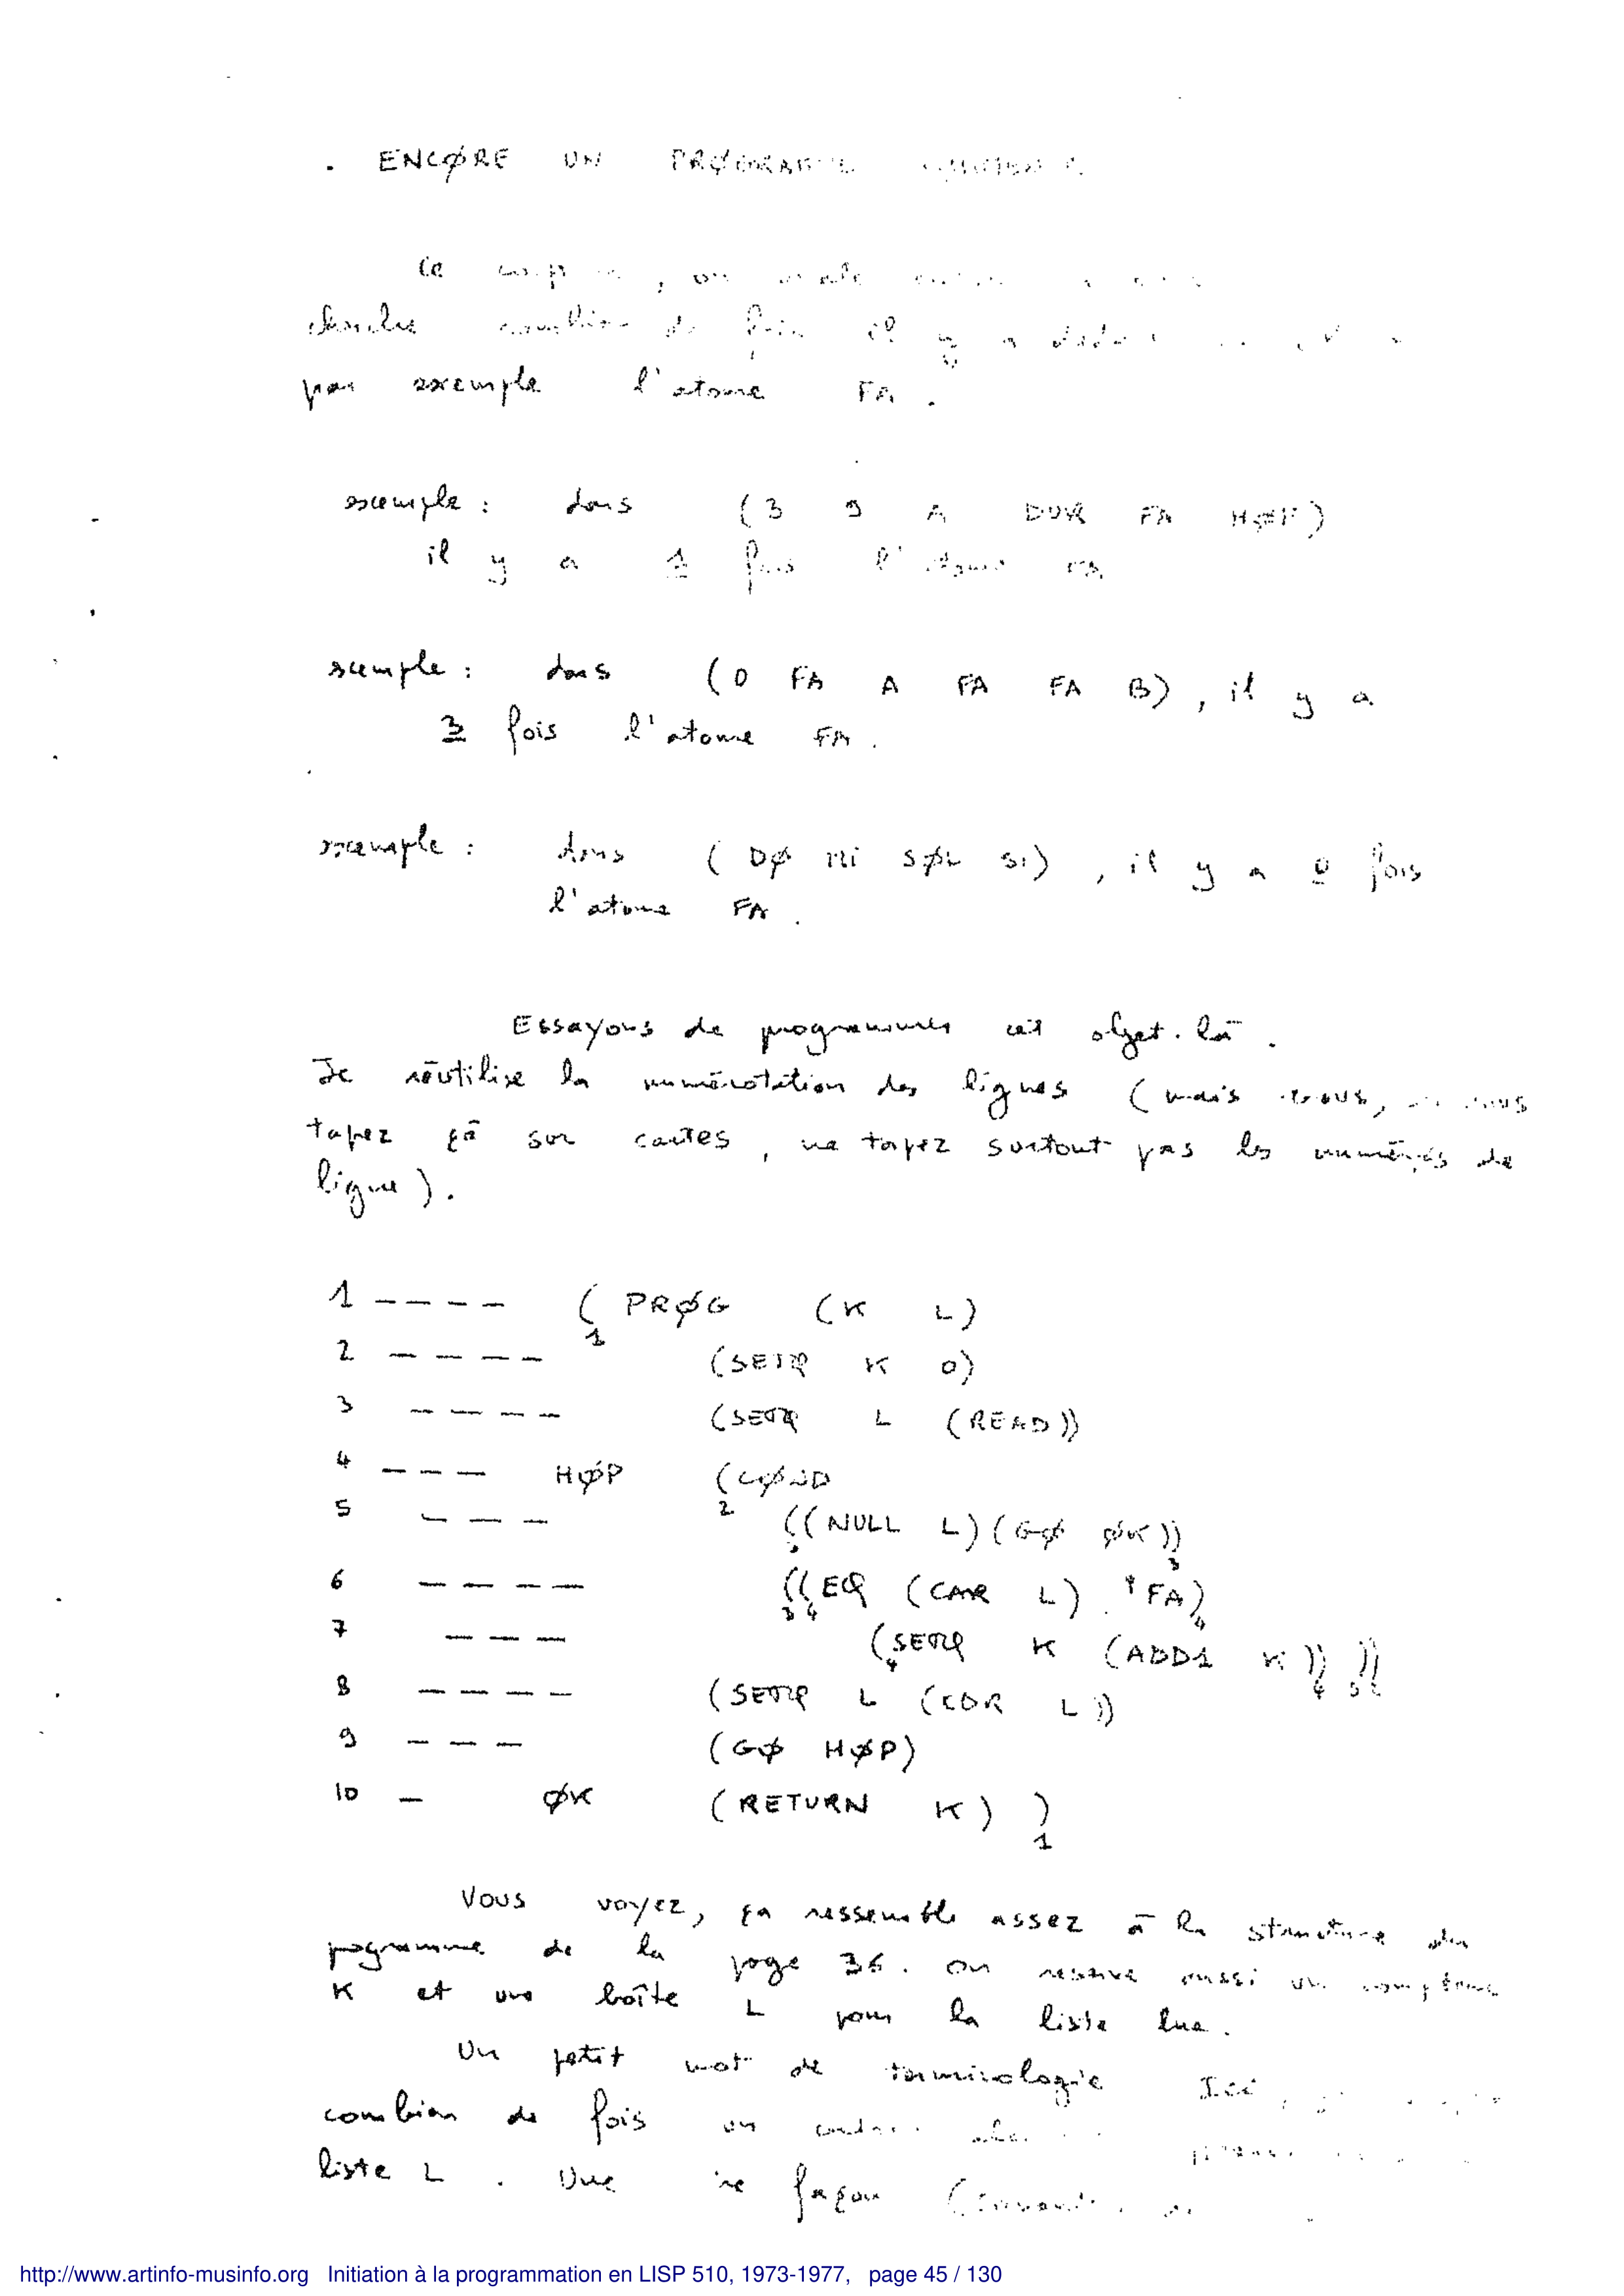 . ENCØRE UN PRØGRAMME
Ce
cherche combien de fois il y a
par exemple l'atome FA .
exemple : dans (3 9 A DUR FA HØP)
il y a 1 fois l'atome FA
exemple : dans (D FA A FA FA B) , il y a
3 fois l'atome FA .
exemple : dans ( DØ MI SØL SI) , il y a 0 fois
l'atome FA .
Essayons de programmer cet objet-là .
Je réutilise la numérotation des lignes (mais vous, vous
tapez çà sur cartes , ne tapez surtout pas les numéros de
ligne ) .
1 ---- ( PRØG (K L)
1
2 ---- (SETQ K 0)
3 ---- (SETQ L (READ))
4 --- HØP (CØND
2
5 --- ((NULL L) (GØ ØK))
3 3
6 ---- ((EQ (CAR L) 'FA)
3 4 4
7 --- (SETQ K (ADD1 K)) ))
4 4 3 2
8 ---- (SETQ L (CDR L))
9 --- (GØ HØP)
10 - ØK (RETURN K) )
1
Vous voyez, ça ressemble assez à la structure du
pogramme de la page 36 . On réserve aussi un compteur
K et une boîte L pour la liste lue .
Un petit mot de terminologie Ici ,
combien de fois un
liste L . Une façon
http://www.artinfo-musinfo.org Initiation à la programmation en LISP 510, 1973-1977, page 45 / 130